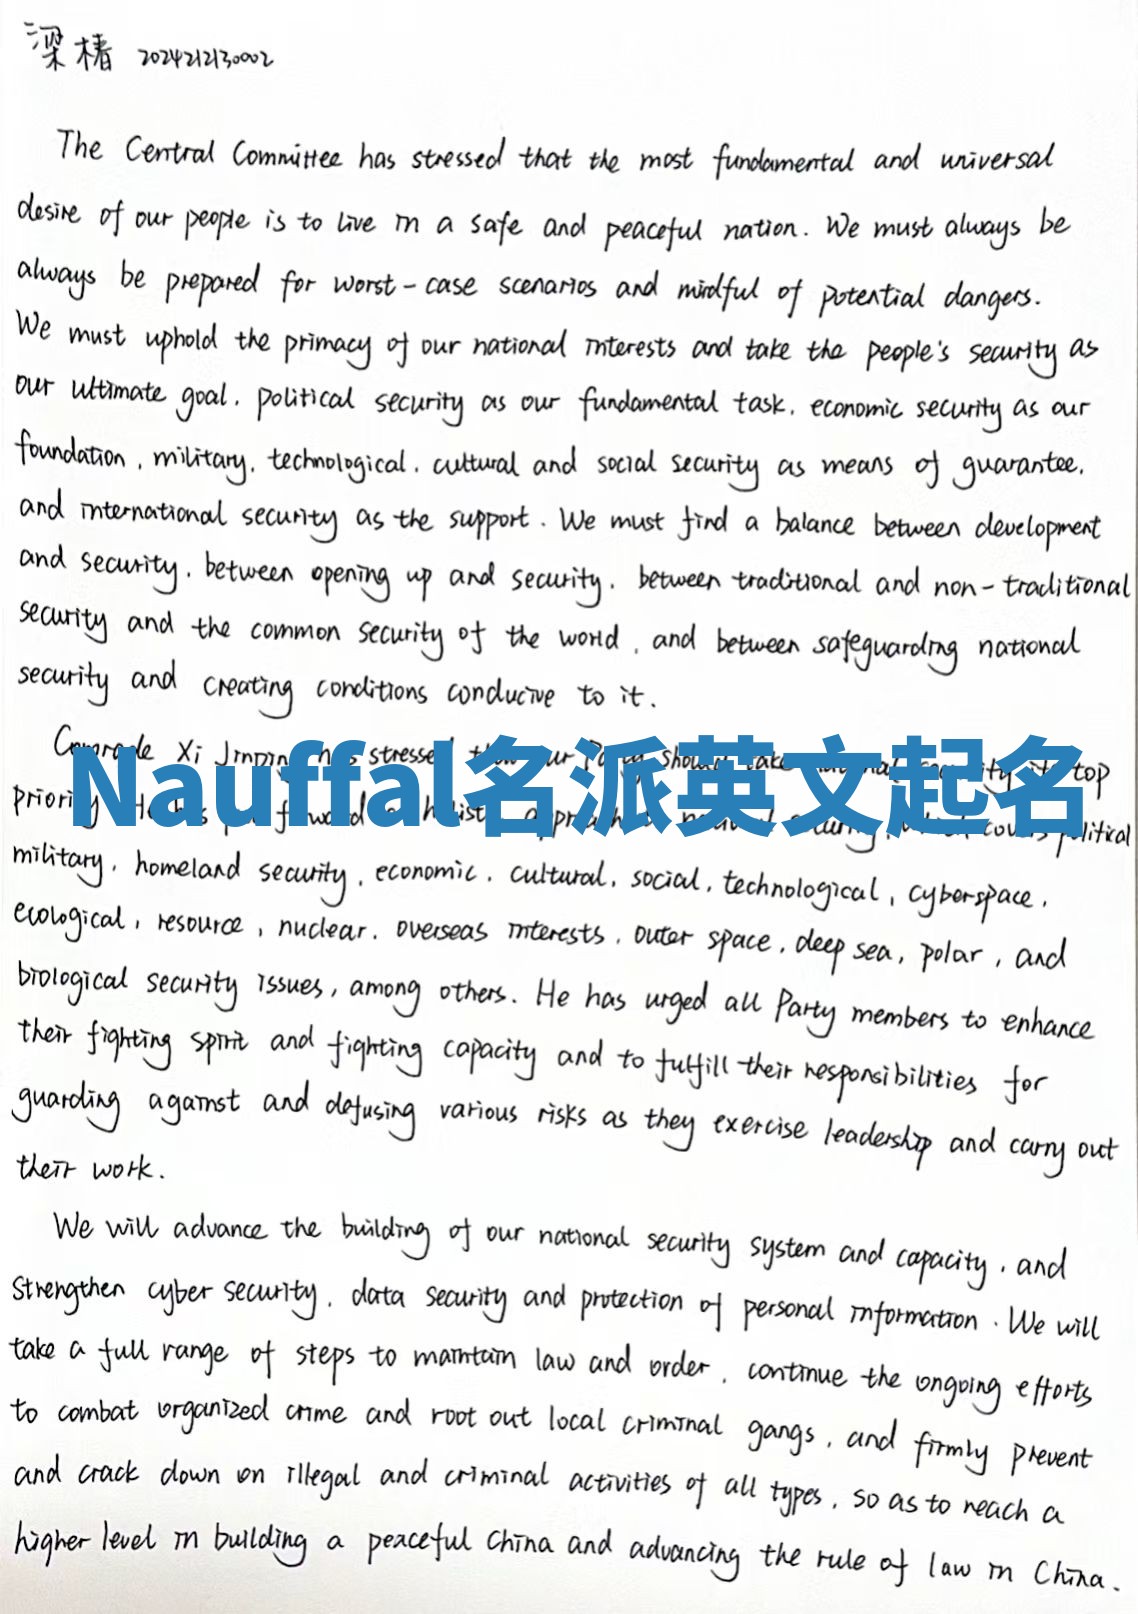 梁椿 2024212130002
The Central Committee has stressed that the most fundamental and universal
desire of our people is to live in a safe and peaceful nation. We must always be
always be prepared for worst-case scenarios and mindful of potential dangers.
We must uphold the primacy of our national interests and take the people's security as
our ultimate goal, political security as our fundamental task, economic security as our
foundation, military, technological, cultural and social security as means of guarantee,
and international security as the support. We must find a balance between development
and security, between opening up and security, between traditional and non-traditional
security and the common security of the world, and between safeguarding national
security and creating conditions conducive to it.
Comrade Xi Jinping has stressed that our Party should take national security its top
Nauffal名派英文起名
priority. He has put forward a holistic approach to national security, which covers political
military, homeland security, economic, cultural, social, technological, cyberspace,
ecological, resource, nuclear, overseas interests, outer space, deep sea, polar, and
biological security issues, among others. He has urged all Party members to enhance
their fighting spirit and fighting capacity and to fulfill their responsibilities for
guarding against and defusing various risks as they exercise leadership and carry out
their work.
We will advance the building of our national security system and capacity, and
strengthen cyber security, data security and protection of personal information. We will
take a full range of steps to maintain law and order, continue the ongoing efforts
to combat organized crime and root out local criminal gangs, and firmly prevent
and crack down on illegal and criminal activities of all types, so as to reach a
higher level in building a peaceful China and advancing the rule of law in China.